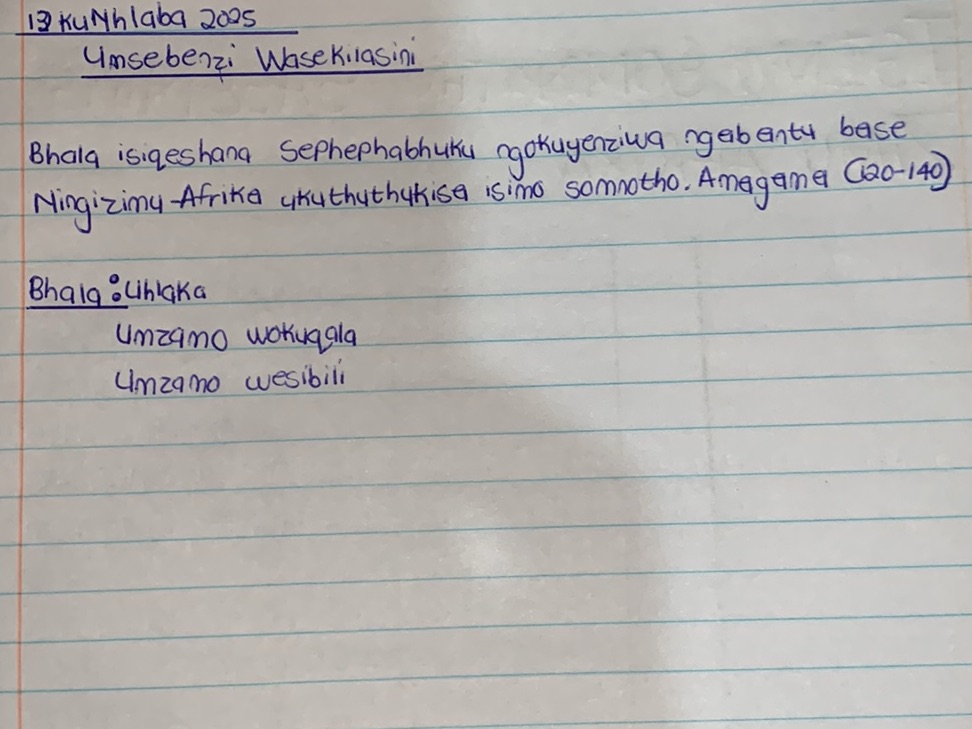 13 KuNhlaba 2025
Umsebenzi Wasekilasini
Bhala isiqeshana Sephephabhuku ngokuyenziwa ngabantu base
Ningizimu-Afrika ukuthuthukisa isimo somnotho. Amagama (120-140)
Bhala : Uhlaka
Umzamo wokuqala
Umzamo wesibili